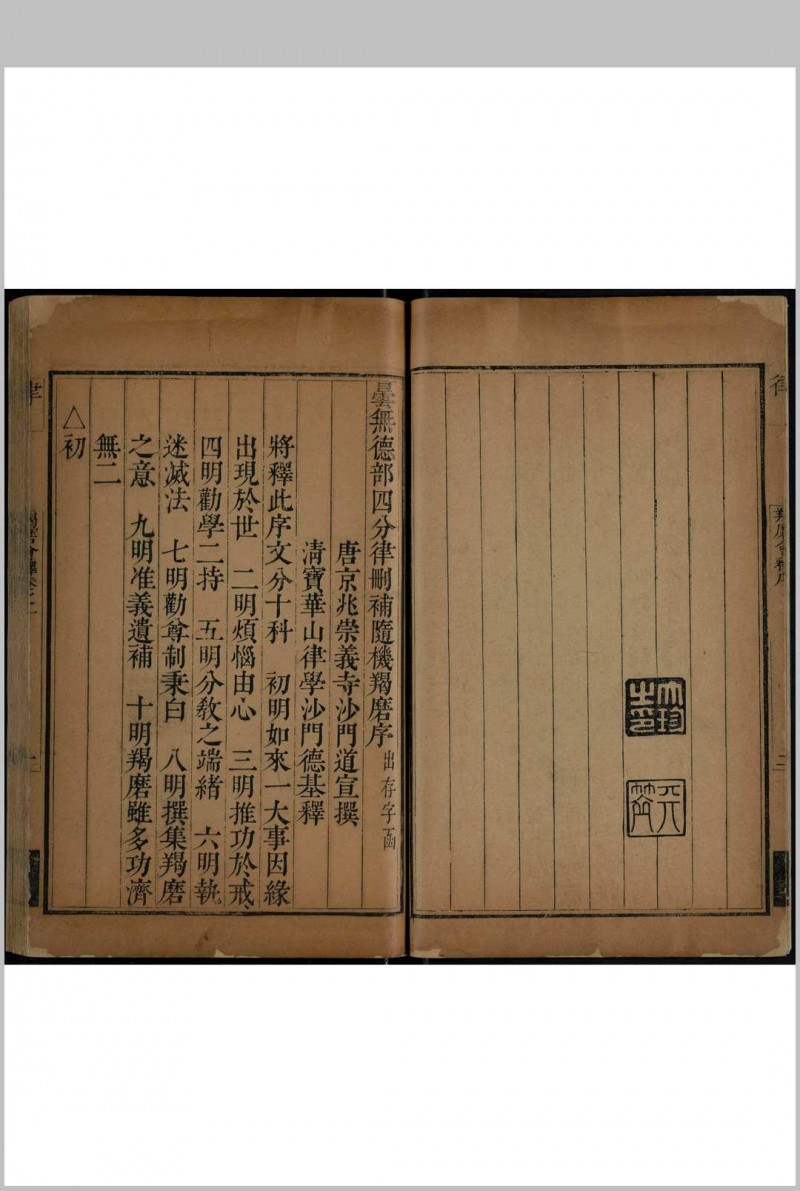 曇無德部四分律刪補隨機羯磨序 出存字函
唐京兆崇義寺沙門道宣撰
清寶華山律學沙門德基釋
將釋此序文分十科　初明如來一大事因緣
出現於世　二明煩惱由心　三明推功於戒
四明勸學二持　五明分教之端緒　六明執
迷滅法　七明勸尊制秉白　八明撰集羯磨
之意　九明准義遺補　十明羯磨雖多功濟
無二
△初